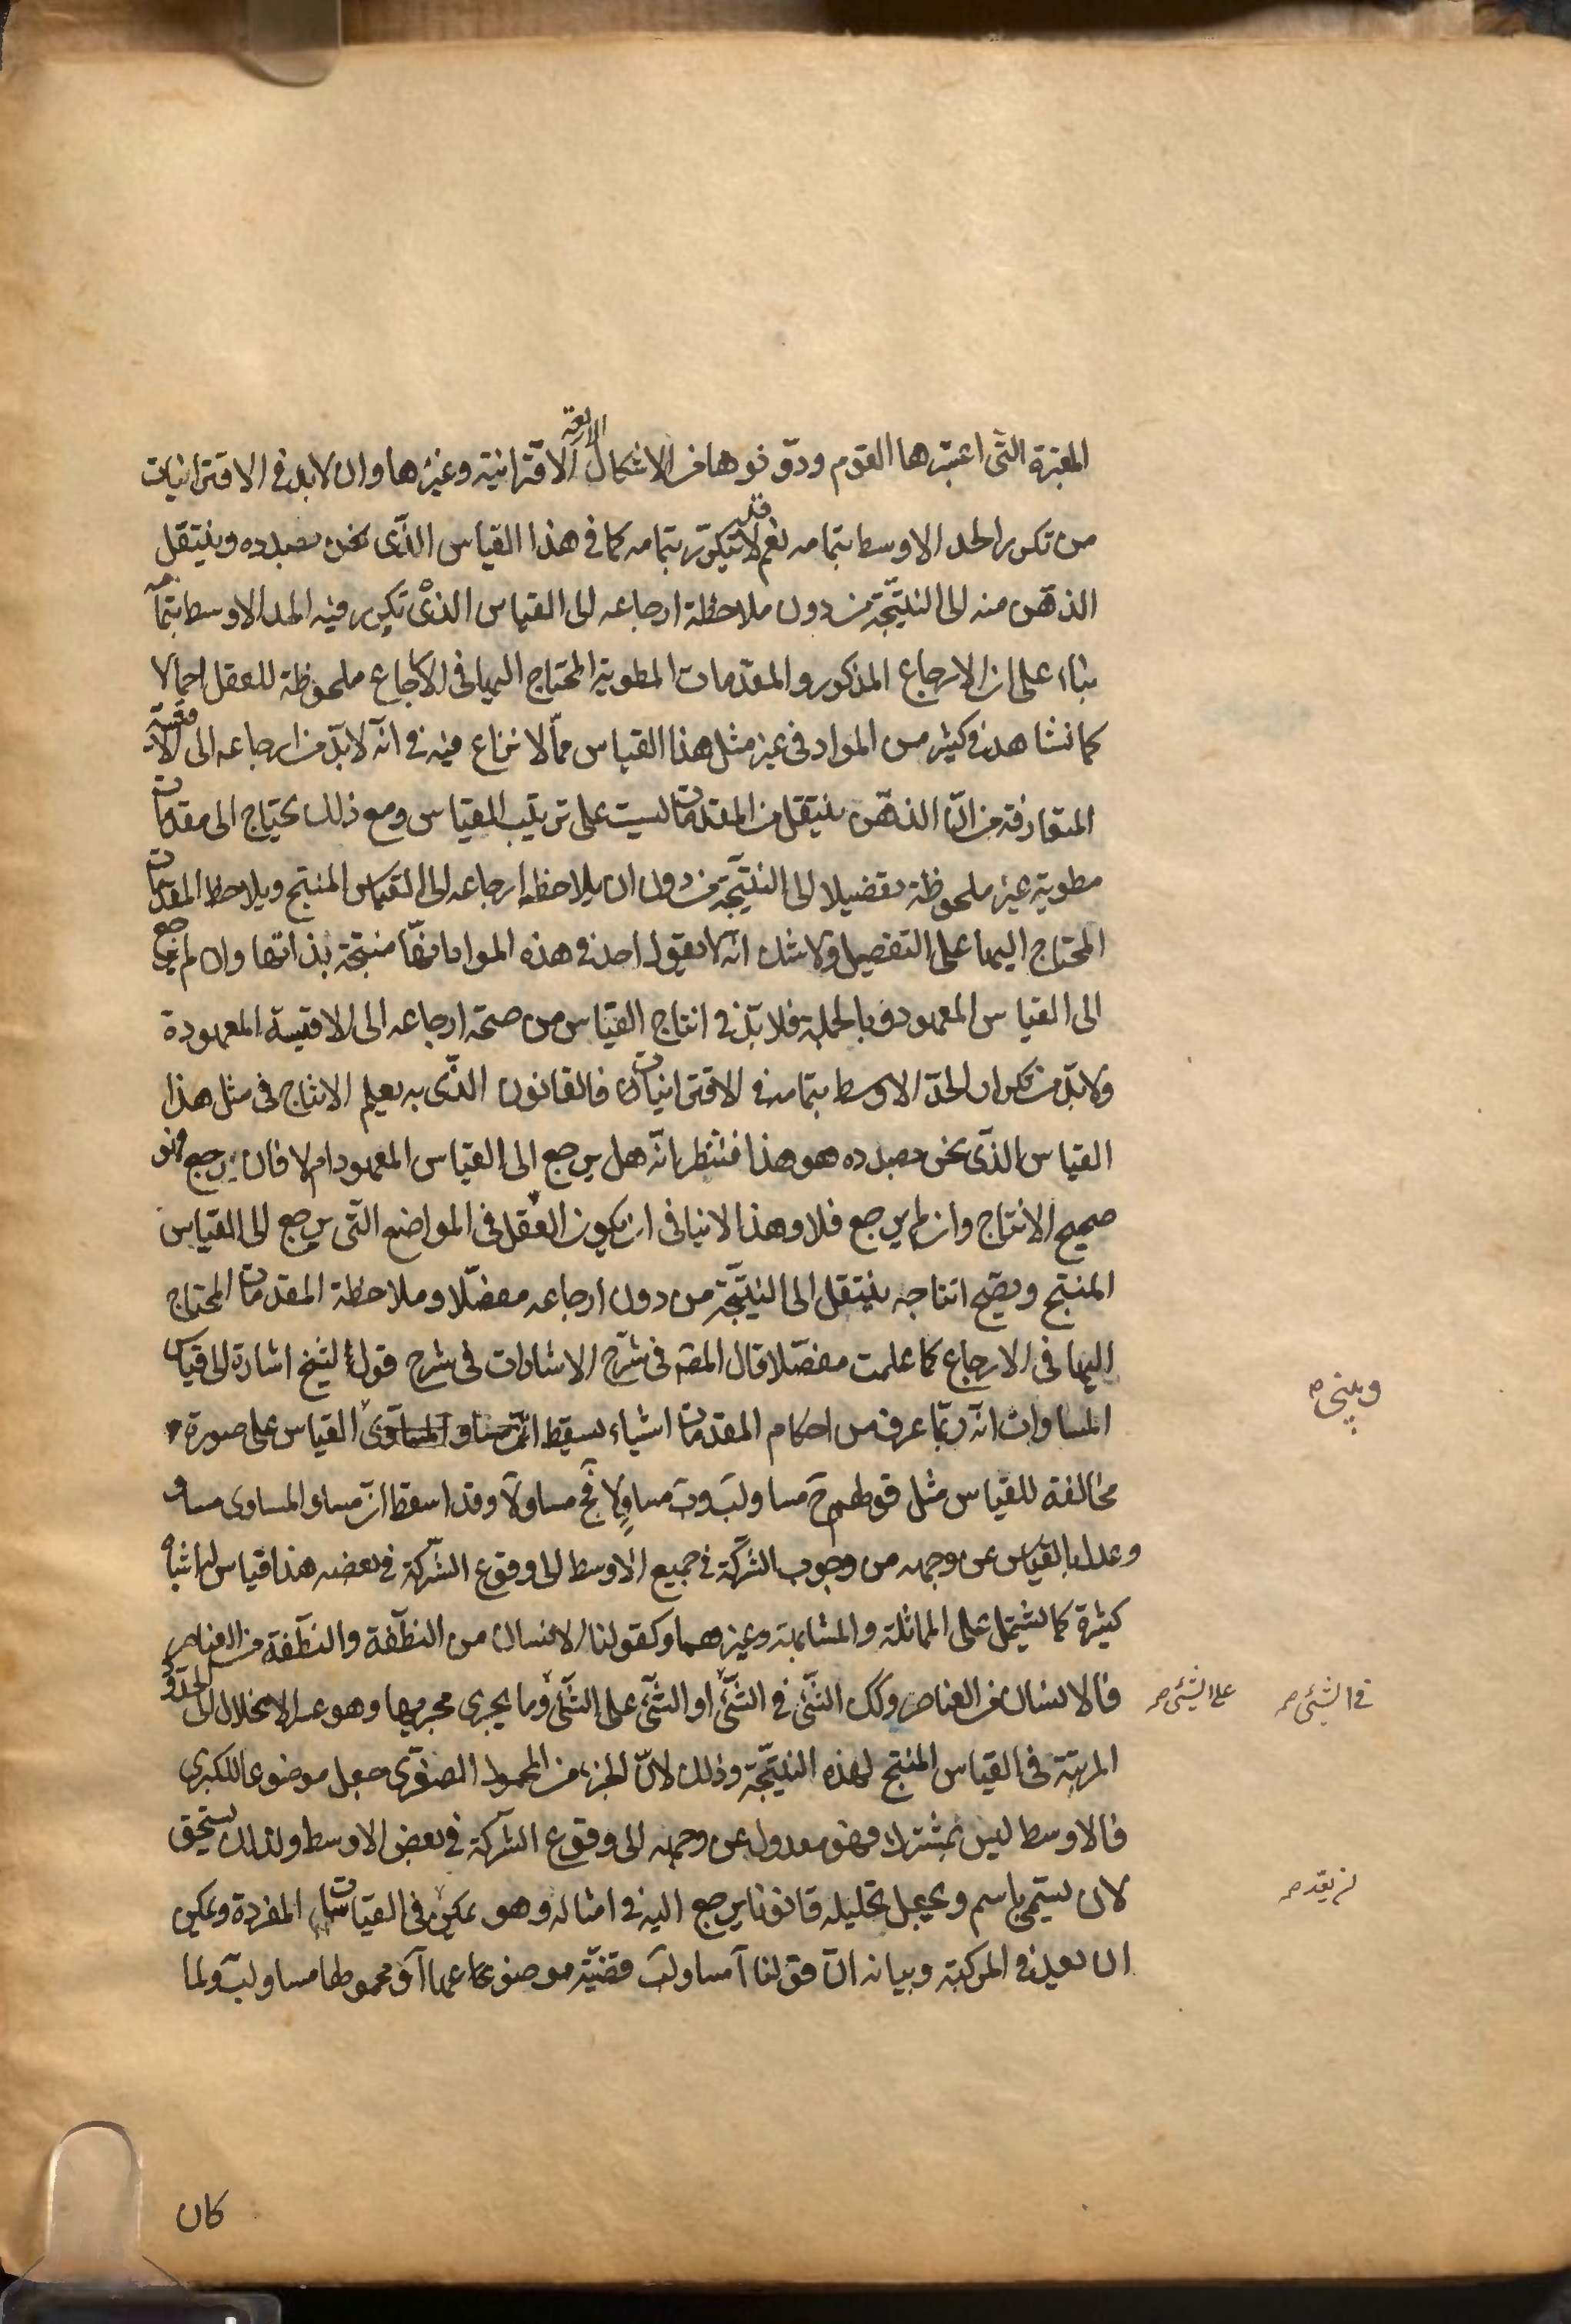 المعتبرة التي اعتبرها القوم ودوّنوها من الاشكال الاربعة الاقترانية وغيرها وان لابد في الاقترانيات
من تكرر الحد الاوسط بتمامه نعم قد لا يتكرّر بتمامه كما في هذا القياس الذّى نحن بصدده وينتقل
الذهن منه الى النتيجة من دون ملاحظة ارجاعه الى القياس الذى تكرر فيه الحد الاوسط بتمامه
بناء على ان الارجاع المذكور والمقدمات المطوية المحتاج اليها في الارجاع ملحوظة للعقل اجمالا
كما نشاهد في كثير من المواد في غير مثل هذا القياس ممّا لا نزاع فيه في انّه لابدّ من ارجاعه الى الاقيسة
المتعارفة من انّ الذهن ينتقل من المقدمات ليست على ترتيب القياس ومع ذلك يحتاج الى مقدمات
مطوية غير ملحوظة تفصيلا الى النتيجة من دون ان يلاحظ ارجاعه الى القياس المنتج ويلاحظ المقدمات
المحتاج اليها على التفصيل ولا شك انّه لا يقول احد في هذه المواد انها منتجة بذاتها وان لم يرجع
الى القياس المعهود وبالجملة فلابدّ في انتاج القياس من صحة ارجاعه الى الاقيسة المعهودة
ولابدّ من تكرار الحدّ الاوسط بتمامه في الاقترانيات فالقانون الذّى به يعلم الانتاج في مثل هذا
القياس الذّى نحن بصدده هو هذا فننظر انّه هل يرجع الى القياس المعهود ام لا فان يرجع فهو
صحيح الانتاج وان لم يرجع فلا وهذا لا ينافى ان يكون العقل في المواضع التّى يرجع الى القياس
المنتج ويصّح انتاجه ينتقل الى النتيجة من دون ارجاعه مفصّلا وملاحظة المقدمات المحتاج
اليها في الارجاع كما علمت مفصّلا قال المصّه في شرح الاشارات في شرح قول الشيخ اشارة الى قياس
المساوات انّه ربّما عرف من احكام المقدمات اشياء يسقط القياس على صورة
مخالفة للقياس مثل قولهم ج مساو لب وب مساوٍ لا فج مساو لا وقد اسقط انّ مساو المساوى مساو
وعدل بالقياس عن وجهه من وجوب الشركة في جميع الاوسط الى وقوع الشركة في بعضه هذا قياس له اشباه
كثيرة كما يشتمل على المماثلة والمشابهة وغيرهما وكقولنا الانسان من النطفة والنطفة من العناصر
فالانسان من العناصر وكك الشّئ في الشّئ او الشّئ على الشّئ وما يجرى مجريها وهو عسر الانحلال الى الحدود
المرتبة في القياس المنتج لهذه النتيجة وذلك لانّ الجزء من المحمول الصغرى جعل موضوعا للكبرى
فالاوسط ليس بمشترك فهو معدول عن وجهه الى وقوع الشركة في بعض الاوسط ولذلك يستحق
لان يسمّى باسم ويجعل تحليله قانونا يرجع اليه في امثاله وهو يمكن في القياسات المفردة ويمكن
ان يعد في المركبة وبيانه انّ قولنا آ مساو لب قضيّة موضوعها آ ومحمولها مساو لب ولما
ويبنى
في الشئ
على الشئ
كان